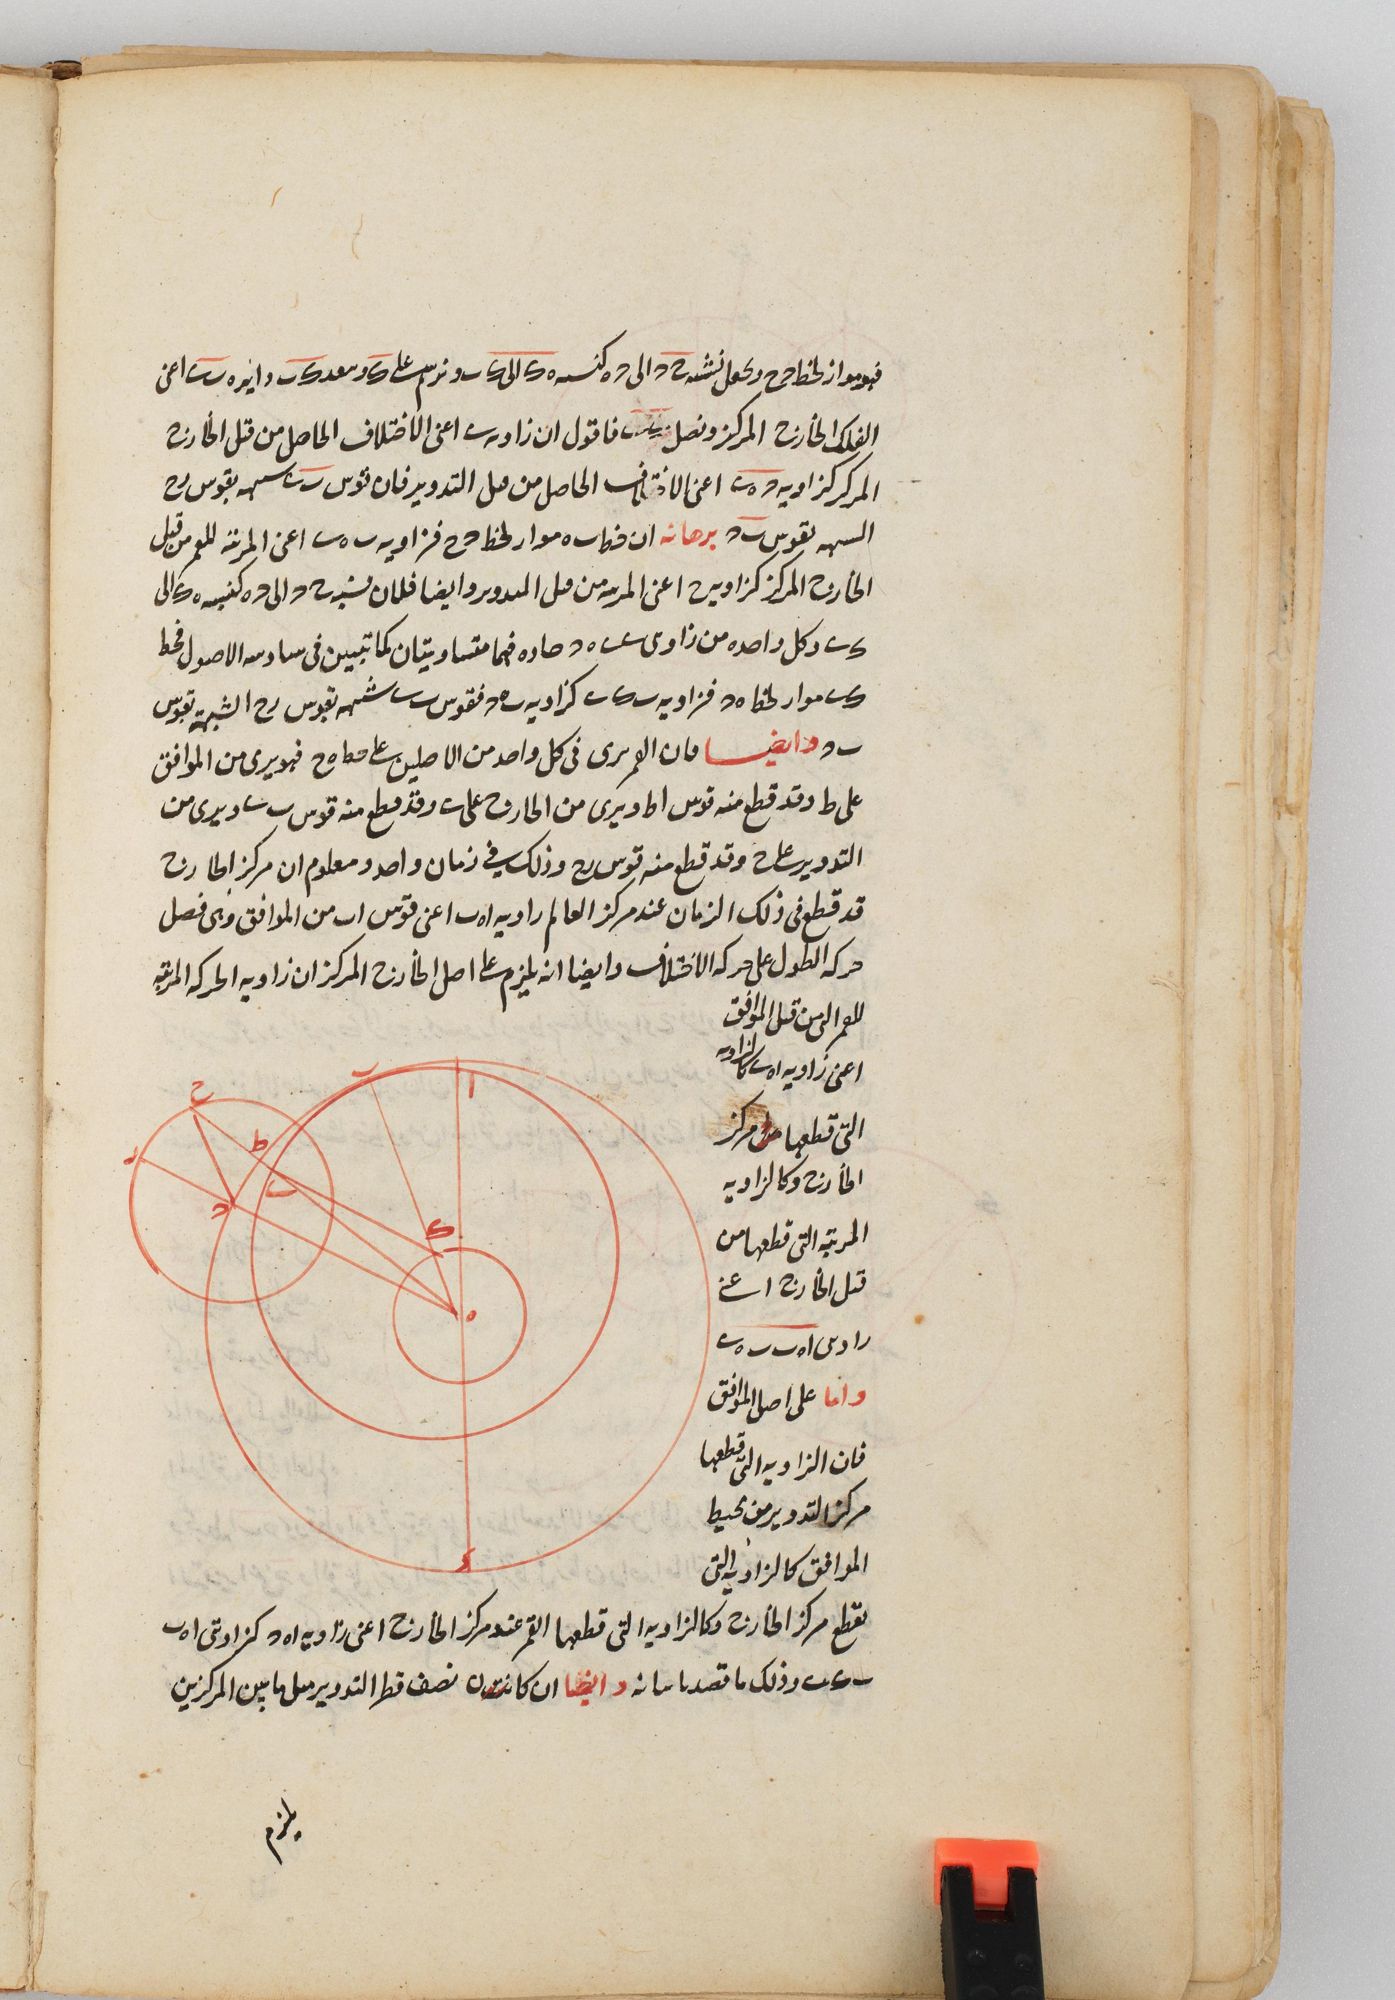 فهو مواز لخط دح ونجعل نسبة ح د الى د ه كنسبة ه ك الى ك ى ونرسم على ك وببعد ك ب دائره ب ى اعنى
الفلك الخارج المركز ونصل فاقول ان زاويه ى اعنى الاختلاف الحاصل من قبل الخارج
المركز كزاويه اعنى الاختلاف الحاصل من قبل التدوير فان قوس ب ى شبيهه بقوس رح
الشبيهه بقوس ا د برهانه ان خط ب ه مواز لخط دح فزاويه ب ه ى اعنى المرئية للقمر من قبل
الخارج المركز كزاوية ح اعنى المرئيه من قبل التدوير وايضا فلان نسبة ح د الى د ه كنسبه ه ك الى
ك ى وكل واحده من زاويتى ه د حاده فهما متساويتان كما تبين فى سادسه الاصول فخط
ك ى مواز لخط ه د فزاويه ب ك ى كزاويه ب ه د فقوس ب ى شبيهه بقوس رح الشبيهة بقوس
ب د وايضا فان القمر يرى فى كل واحد من الاصلين على خط ه ح فهو يرى من الموافق
على ط وقد قطع منه قوس ا ط ويرى من الخارج على ى وقد قطع منه قوس ب ى ويرى من
التدوير على ح وقد قطع منه قوس رح وذلك فى زمان واحد ومعلوم ان مركز الخارج
قد قطع فى ذلك الزمان عند مركز العالم زاويه ا ه ب اعنى قوس ا ب من الموافق وهى فضل
حركه الطول على حركه الاختلاف وايضا انه يلزم على اصل الخارج المركز ان زاويه الحركه المرئيه
للقمر التى من قبل الموافق
اعنى زاويه ا ه ى كالزاويه
التى قطعها مركز
الخارج وكالزاويه
المرئيه التى قطعها من
قبل الخارج اعنى
زاويتى ا ه ب ب ه ى
واما على اصل الموافق
فان الزاويه التى قطعها
مركز التدوير من محيط
الموافق كالزاويه التى
يقطع مركز الخارج وكالزاويه التى قطعها القمر عند مركز الخارج اعنى زاويه ا ه د كزاويتى ا ه ب
ب ك ى وذلك ما قصدنا بيانه وايضا ان كانت نصف قطر التدوير مثل ما بين المركزين
يلزم
ا
ب
ح
ط
ر
ى
د
ك
ه